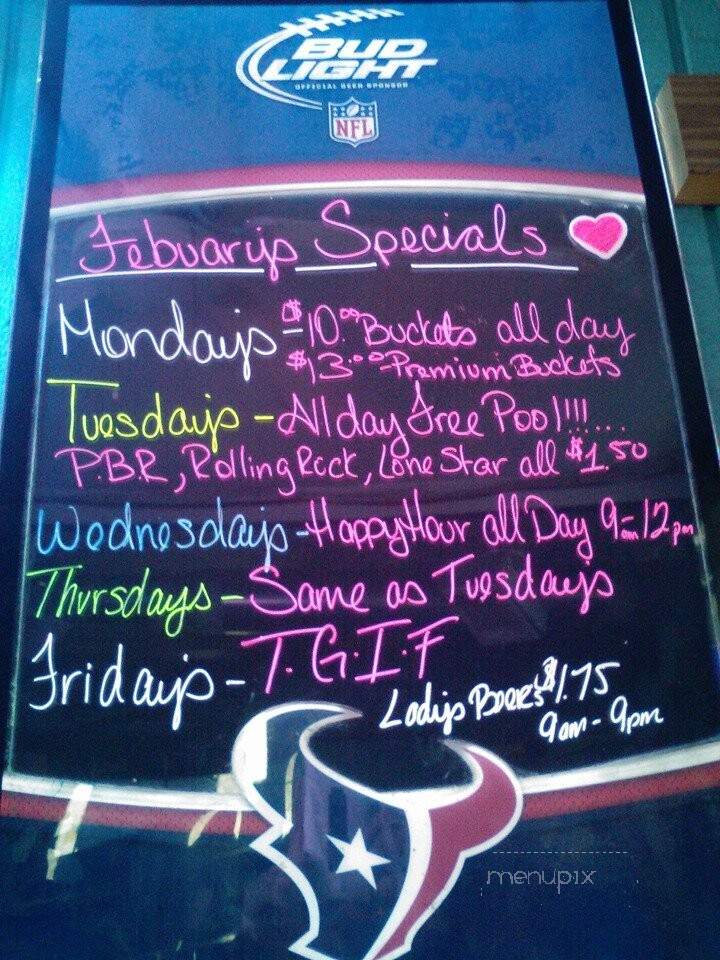 BUD LIGHT
OFFICIAL BEER SPONSOR
NFL
Febuarys Specials
Mondays - $10.00 Buckets all day
$13.00 Premium Buckets
Tuesdays - All day Free Pool!!!...
P.B.R, Rolling Rock, Lone Star all $1.50
Wednesdays - Happy Hour all Day 9am-12pm
Thursdays - Same as Tuesdays
Fridays - T.G.I.F
Ladys Beers $1.75
9am - 9pm
menupix